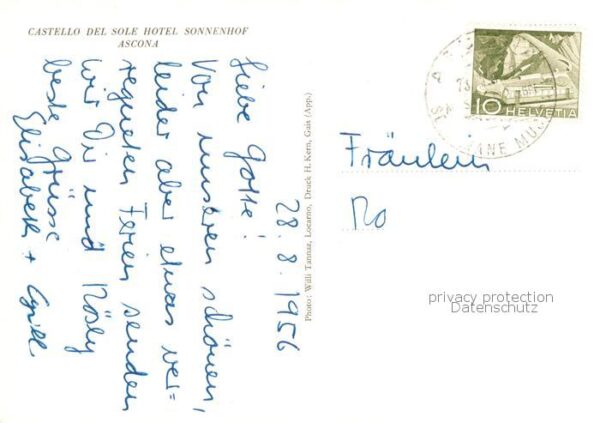 CASTELLO DEL SOLE HOTEL SONNENHOF
ASCONA
28.8.1956
Liebe Gotte!
Von unseren schönen,
leider aber etwas ver=
regneten Ferien senden
wir Dir und Rösly
beste Grüsse
Elisabeth + Cyrill
Photo: Willi Tannaz, Locarno, Druck H. Kern, Gais (App.)
10 HELVETIA
Fräulein
Ro
privacy protection
Datenschutz